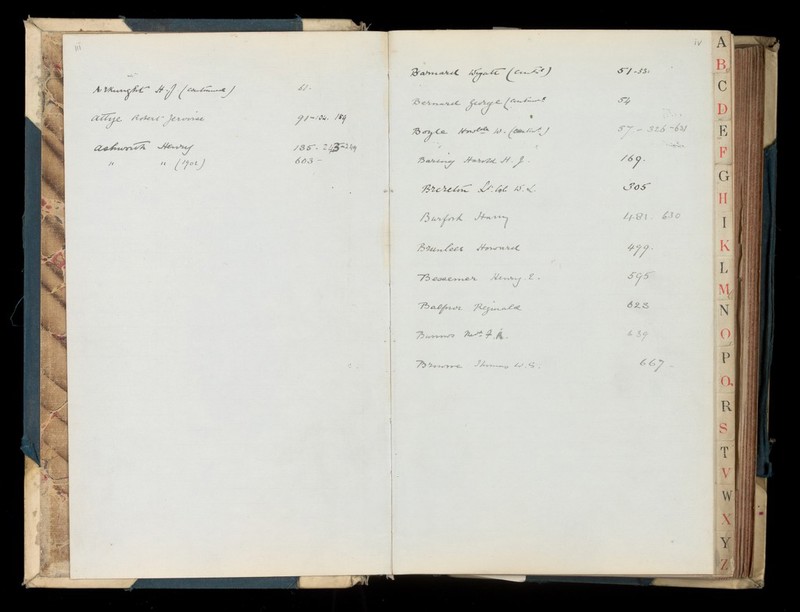 iii
Arkwright H.J (continued) 11.
Attye Robert Jervoise 91-134. 184
Ashworth Henry 185-
" " (1902) 603-
iv
Barnard Wyatt (Cont^d) 51-
Bernard George (Continued 54
Boyle W. (Cont^d.) 57-325-
Baring Harold H. J. 169.
Brereton Lt. Col. W. L. 305
Burford Harry 481. 630
Howard 499.
Bessemer Henry. E. 595
Balfour Reginald 623
Burrows 639
Browne Thomas W. 667-
A
B
C
D
E
F
G
H
I
K
L
M
N
O
P
Q
R
S
T
V
W
X
Y
Z